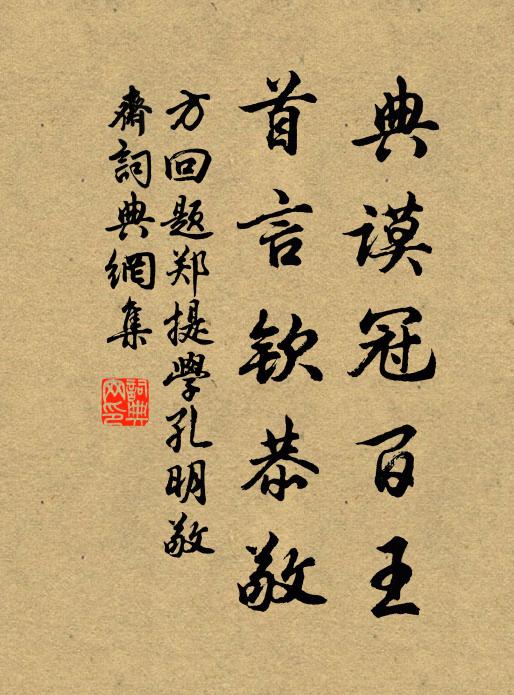 典谟冠百王
首言钦恭敬
方回题郑提學孔明敬
齋詞典網集
詞典